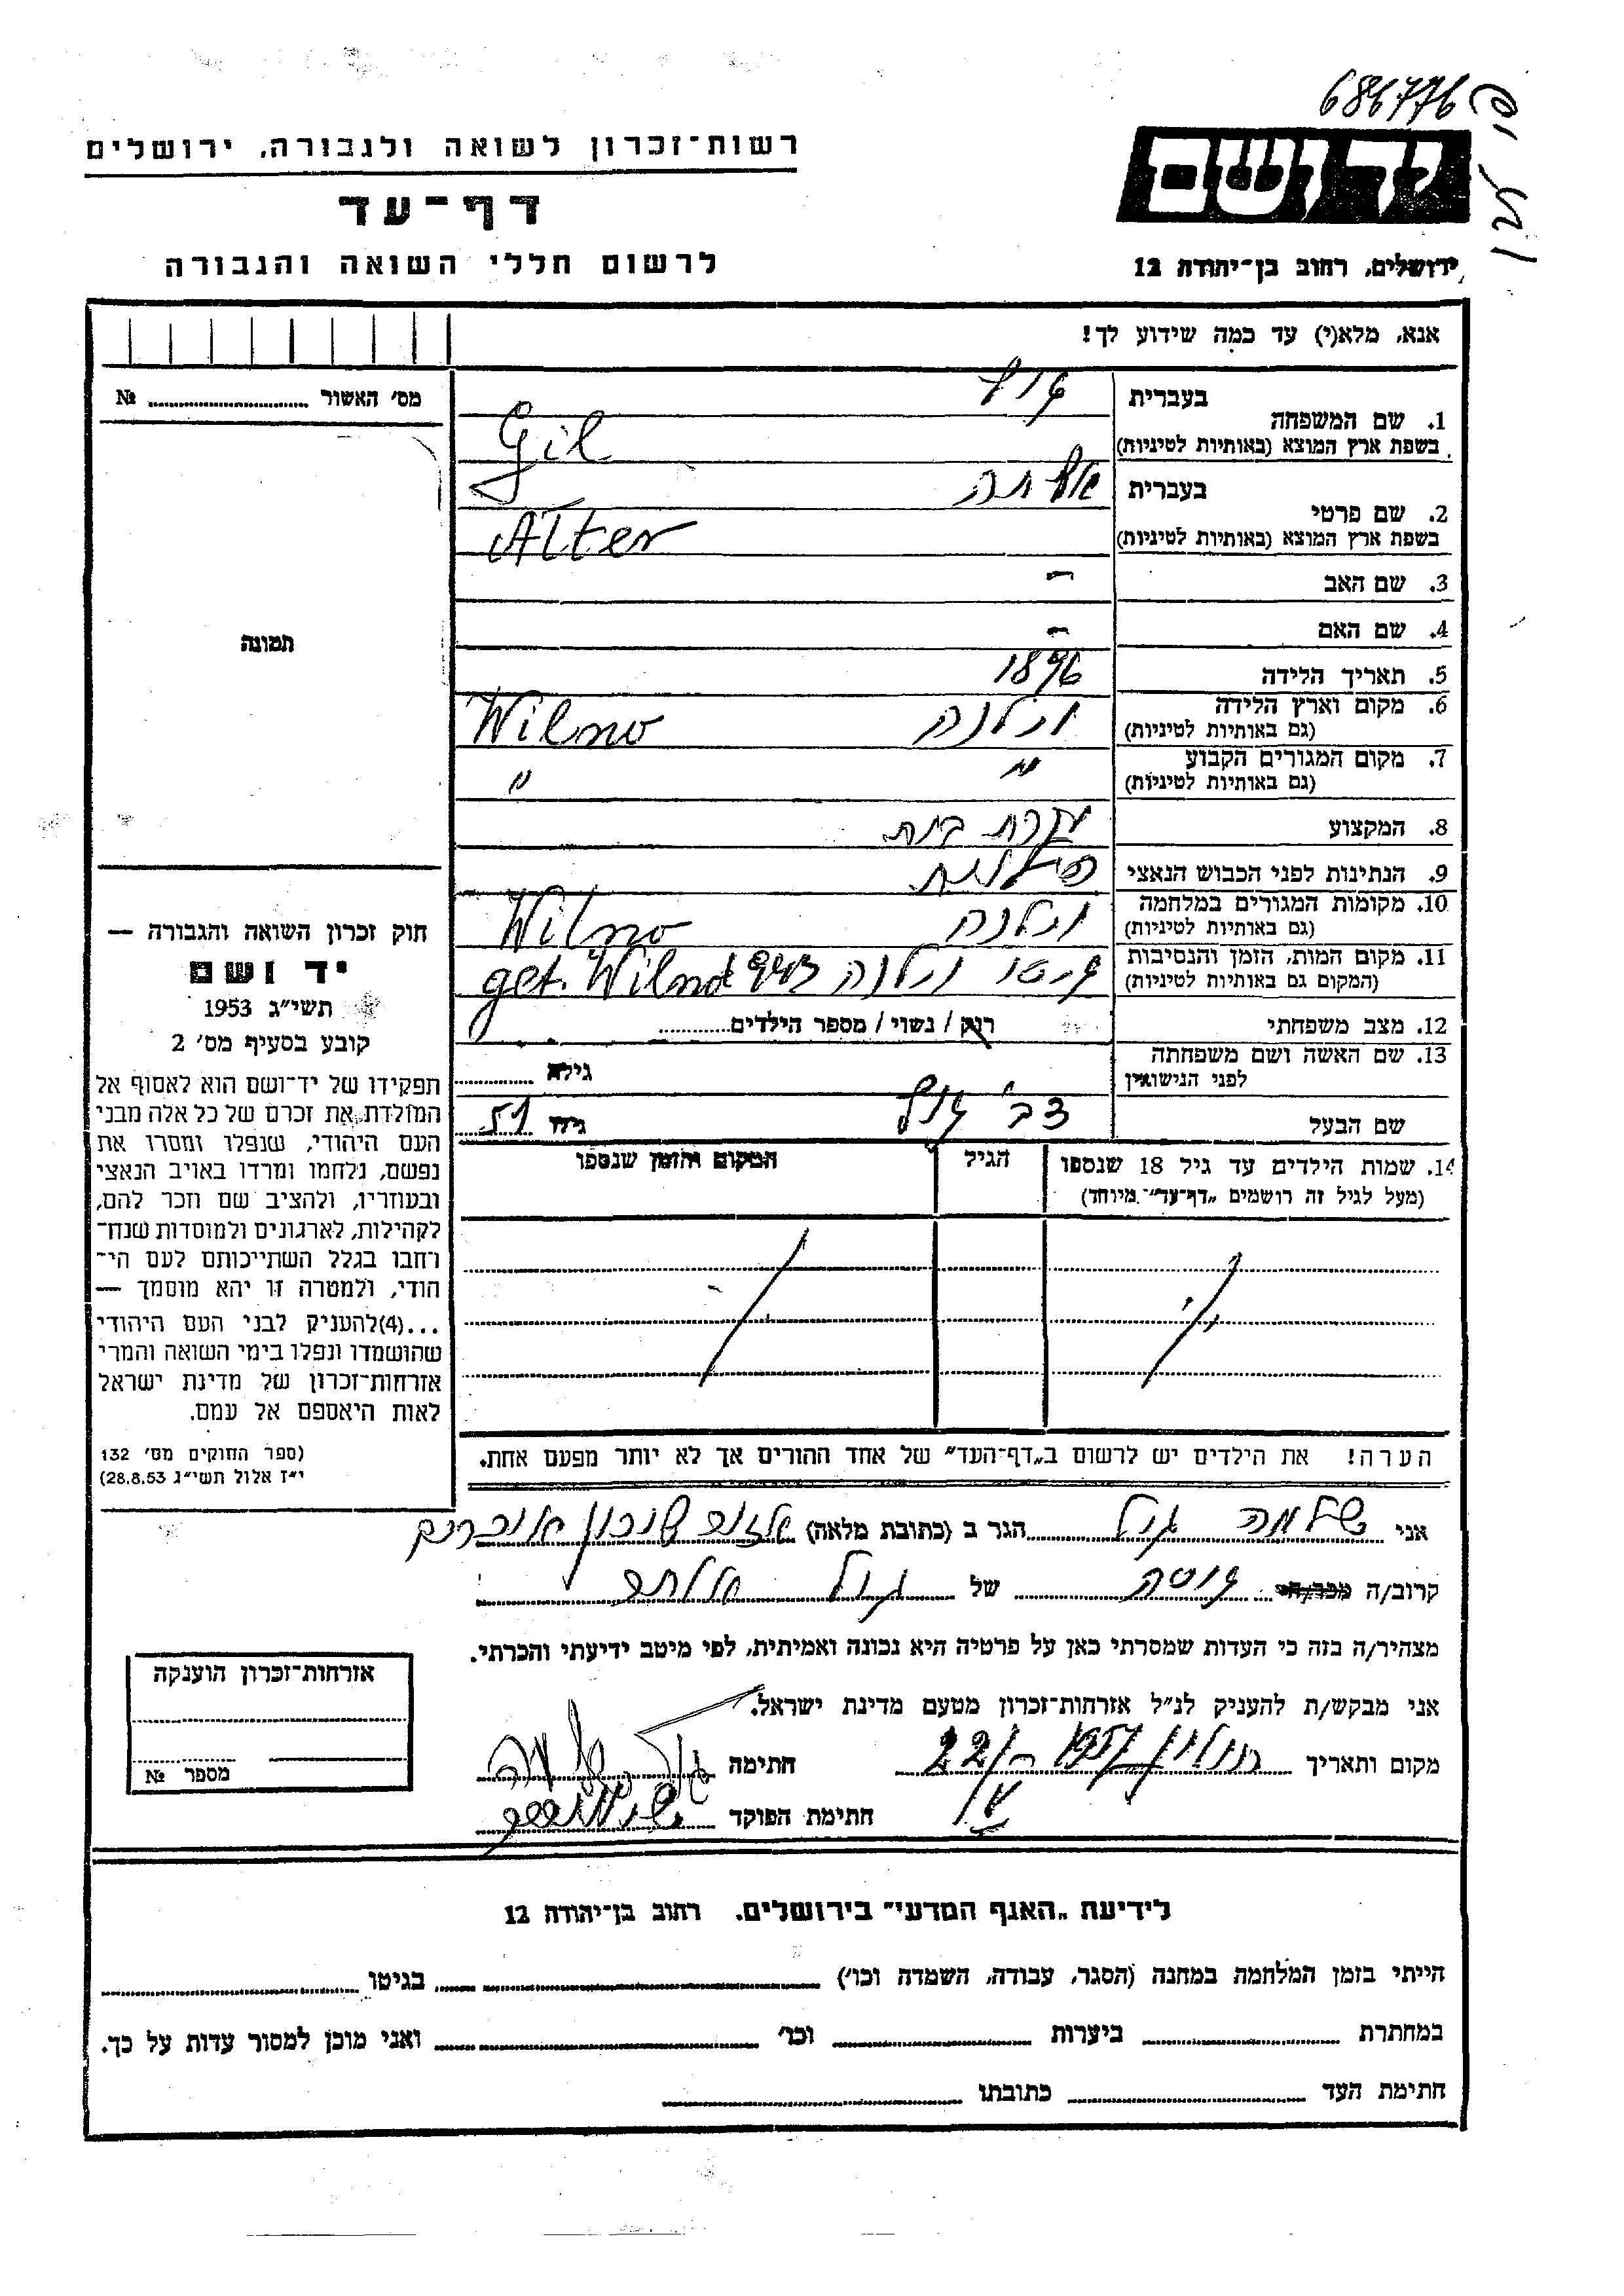 686776
רשות־זכרון לשואה ולגבורה, ירושלים
יד ושם
דף־עד
לרשום חללי השואה והגבורה
ירושלים, רחוב בן־יהודה 12
אנא, מלא(י) עד כמה שידוע לך!
מס' האשור № ........
1. שם המשפחה
בעברית גיל
בשפת ארץ המוצא (באותיות לטיניות) Gil
2. שם פרטי
בעברית
בשפת ארץ המוצא (באותיות לטיניות) Alter
3. שם האב –
4. שם האם –
5. תאריך הלידה 1896
6. מקום וארץ הלידה
(גם באותיות לטיניות) וילנה Wilno
7. מקום המגורים הקבוע
(גם באותיות לטיניות) " "
8. המקצוע עקרת בית
9. הנתינות לפני הכבוש הנאצי פולנית
10. מקומות המגורים במלחמה
(גם באותיות לטיניות) וילנה Wilno
11. מקום המות, הזמן והנסיבות
(המקום גם באותיות לטיניות) גיטו וילנה 1943 get. Wilno
12. מצב משפחתי רווק / נשוי / מספר הילדים........
13. שם האשה ושם משפחתה
לפני הנישואין גילה ........
שם הבעל צבי גיל גילו 51
14. שמות הילדים עד גיל 18 שנספו
(מעל לגיל זה רושמים „דף־עד" מיוחד)
הגיל
המקום והזמן שנספו
הערה! את הילדים יש לרשום ב„דף־העד" של אחד ההורים אך לא יותר מפעם אחת.
תמונה
חוק זכרון השואה והגבורה —
יד ושם
תשי"ג 1953
קובע בסעיף מס' 2
תפקידו של יד־ושם הוא לאסוף אל
המולדת את זכרם של כל אלה מבני
העם היהודי, שנפלו ומסרו את
נפשם, נלחמו ומרדו באויב הנאצי
ובעוזריו, ולהציב שם וזכר להם,
לקהילות, לארגונים ולמוסדות שנח־
רחבו בגלל השתייכותם לעם הי־
הודי, ולמטרה זו יהא מוסמך —
...(4)להעניק לבני העם היהודי
שהושמדו ונפלו בימי השואה והמרי
אזרחות־זכרון של מדינת ישראל
לאות היאספם אל עמם.
(ספר החוקים מס' 132
י"ז אלול תשי"ג 28.8.53)
אני שלמה גיל הגר ב (כתובת מלאה) שיכון
קרוב/ה מכר/ה גיסה של גיל
מצהיר/ה בזה כי העדות שמסרתי כאן על פרטיה היא נכונה ואמיתית, לפי מיטב ידיעתי והכרתי.
אני מבקש/ת להעניק לנ"ל אזרחות־זכרון מטעם מדינת ישראל.
מקום ותאריך חולון 1957 22/ חתימה
חתימת הפוקד
אזרחות־זכרון הוענקה
מספר №
לידיעת „האגף המדעי" בירושלים. רחוב בן־יהודה 12
הייתי בזמן המלחמה במחנה (הסגר, עבודה, השמדה וכו') ........ בגיטו ........
במחתרת ........ ביערות ........ וכו' ........ ואני מוכן למסור עדות על כך.
חתימת העד ........ כתובתו ........